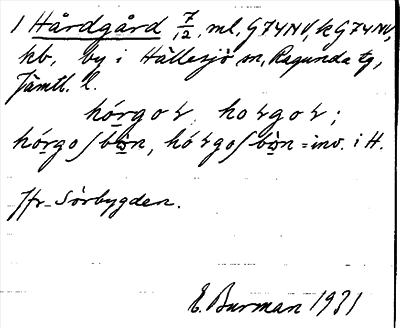 1 Hårdgård 7/12, ml, G74NV, k G74NV,
kb, by i Hällesjö sn, Ragunda tg,
Jämtl. l.
hórgoɹ, hoɹgoɹ;
hórgoʃbo̤n, hóɹgoʃbo̤n = inv. i H.
Jfr Sörbygden.
E. Burman 1931